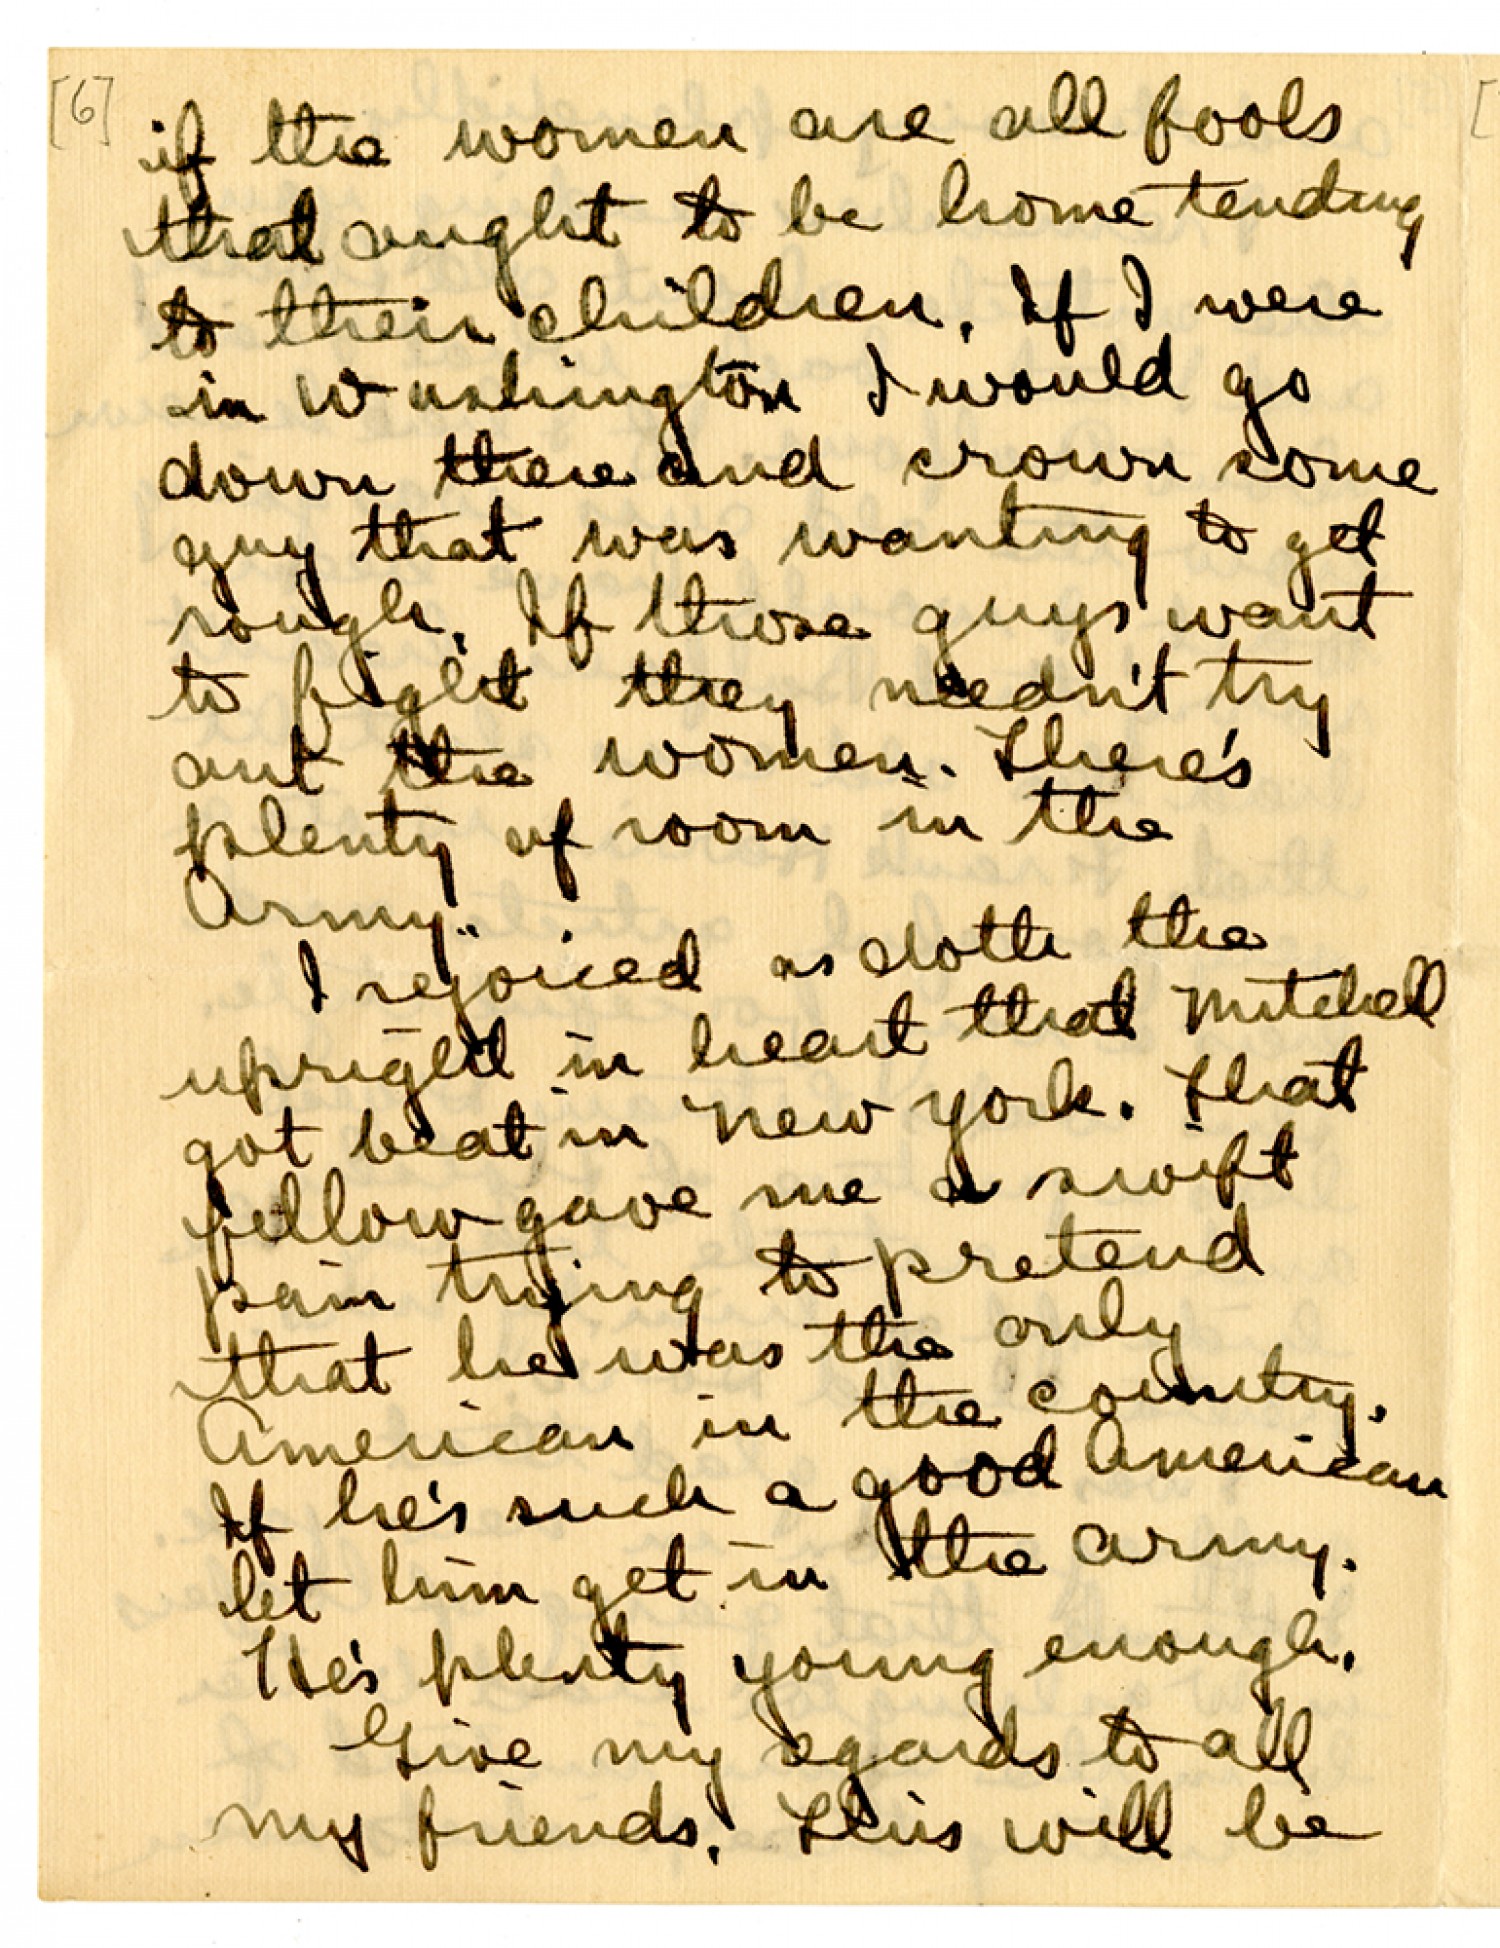 [6]
if the women are all fools
that ought to be home tending
to their children. If I were
in Washington I would go
down there and crown some
guy that was wanting to get
rough. If those guys want
to fight they needn't try
out the women. There's
plenty of room in the
Army.
I rejoiced as doth the
upright in heart that Mitchell
got beat in New York. That
fellow gave me a swift
pain trying to pretend
that he was the only
American in the country.
If he's such a good American
let him get in the army.
He's plenty young enough.
Give my regards to all
my friends. This will be